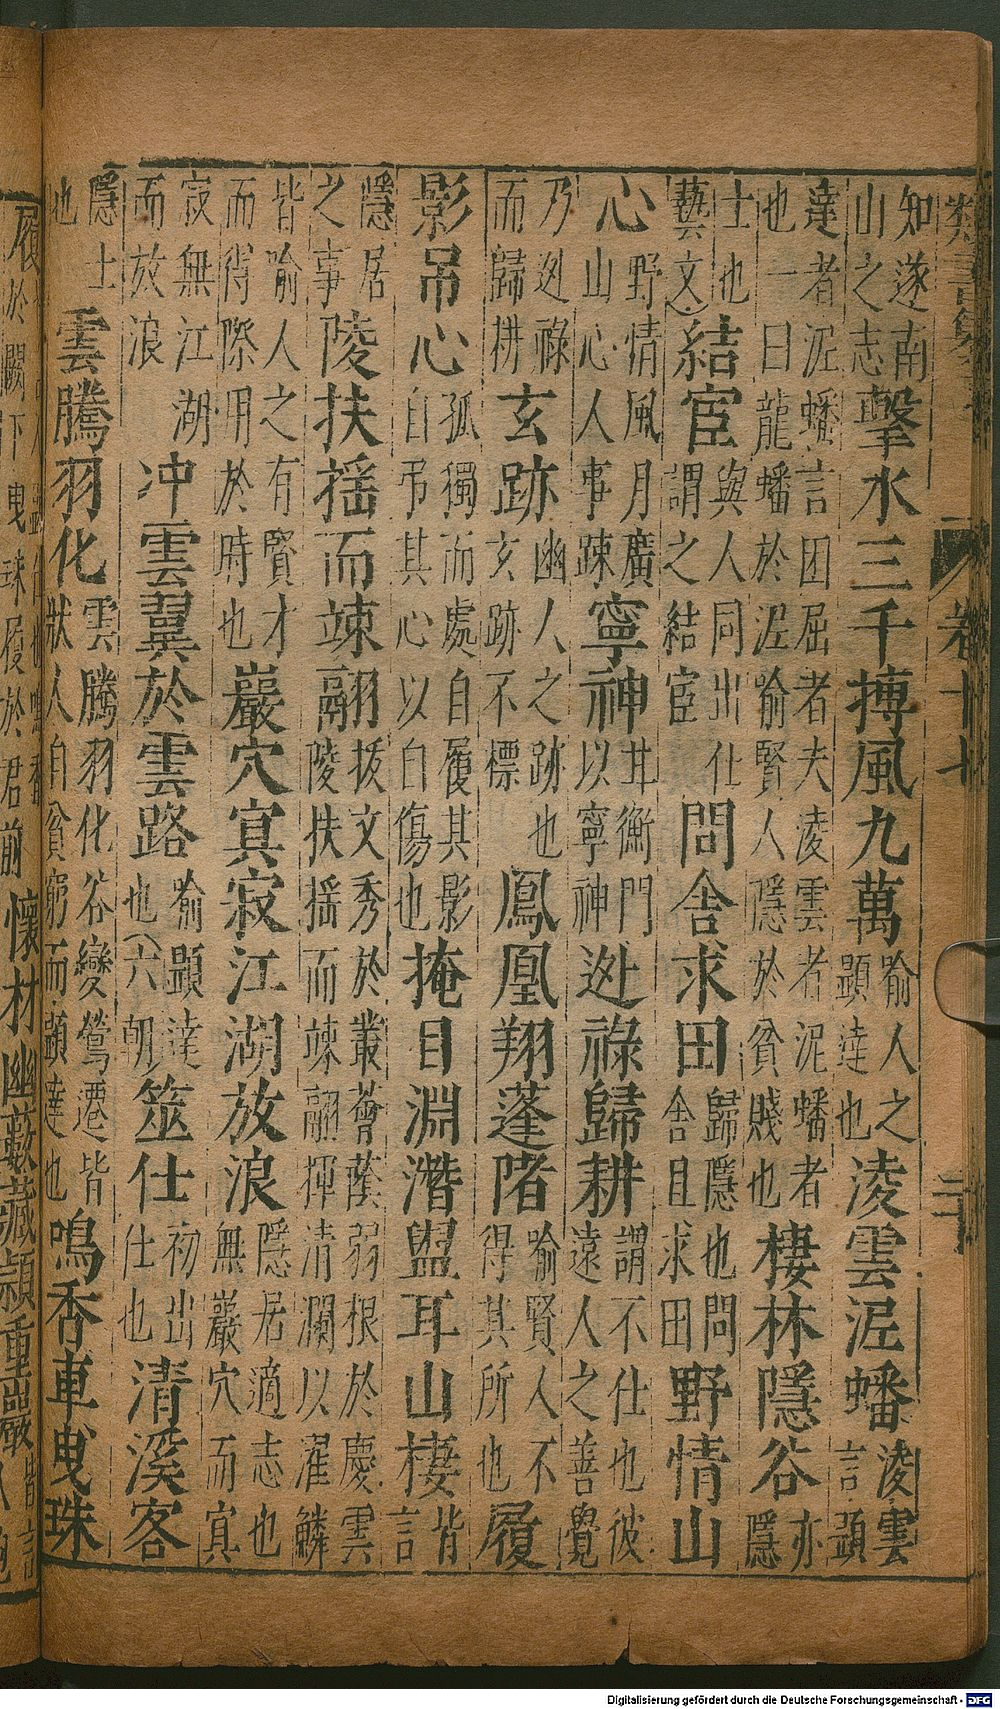 卷十七
知遂南山之志擊水三千搏風九萬喻人之顯達也凌雲泥蟠凌雲言顯
達者泥蟠言困屈者夫凌雲者泥蟠者也一曰龍蟠於泥喻賢人隱於貧賤也棲林隱谷亦隱
士也藝文)結宦與人同出仕謂之結宦問舍求田歸隱也問舍且求田野情山
心野情風月廣山心人事踈寧神甘衡門以寧神逊祿歸耕謂不仕也彼遠人之善覺
乃逊祿而歸耕玄跡幽人之跡也玄跡不標鳳凰翔蓬陼喻賢人不得其所也履
影吊心孤獨而處自履其影自吊其心以自傷也掩目淵潛盥耳山棲皆言
隱居之事陵扶揺而竦翮拔文秀於叢薈蔭弱根於慶雲陵扶揺而竦翮揮清瀾以濯鱗
皆喻人之有賢才而得際用於時也巖穴寘寂江湖放浪隱居適志也無巖穴而寘
寂無江湖而放浪冲雲翼於雲路喻顯達也(六朝筮仕初出仕也清溪客
隱士也雲騰羽化雲騰羽化谷變鶯遷皆猷人自貧窮而顯達也鳴香車曳珠
履於闕下曳珠履於君前懷材幽藪藏頴重岩
Digitalisierung gefördert durch die Deutsche Forschungsgemeinschaft - DFG